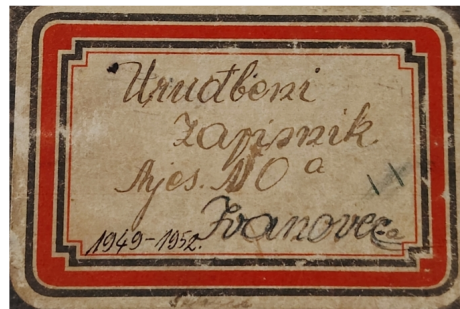 Urudbeni
zapisnik
Mjes. NO a
Ivanovec
1949-1952.